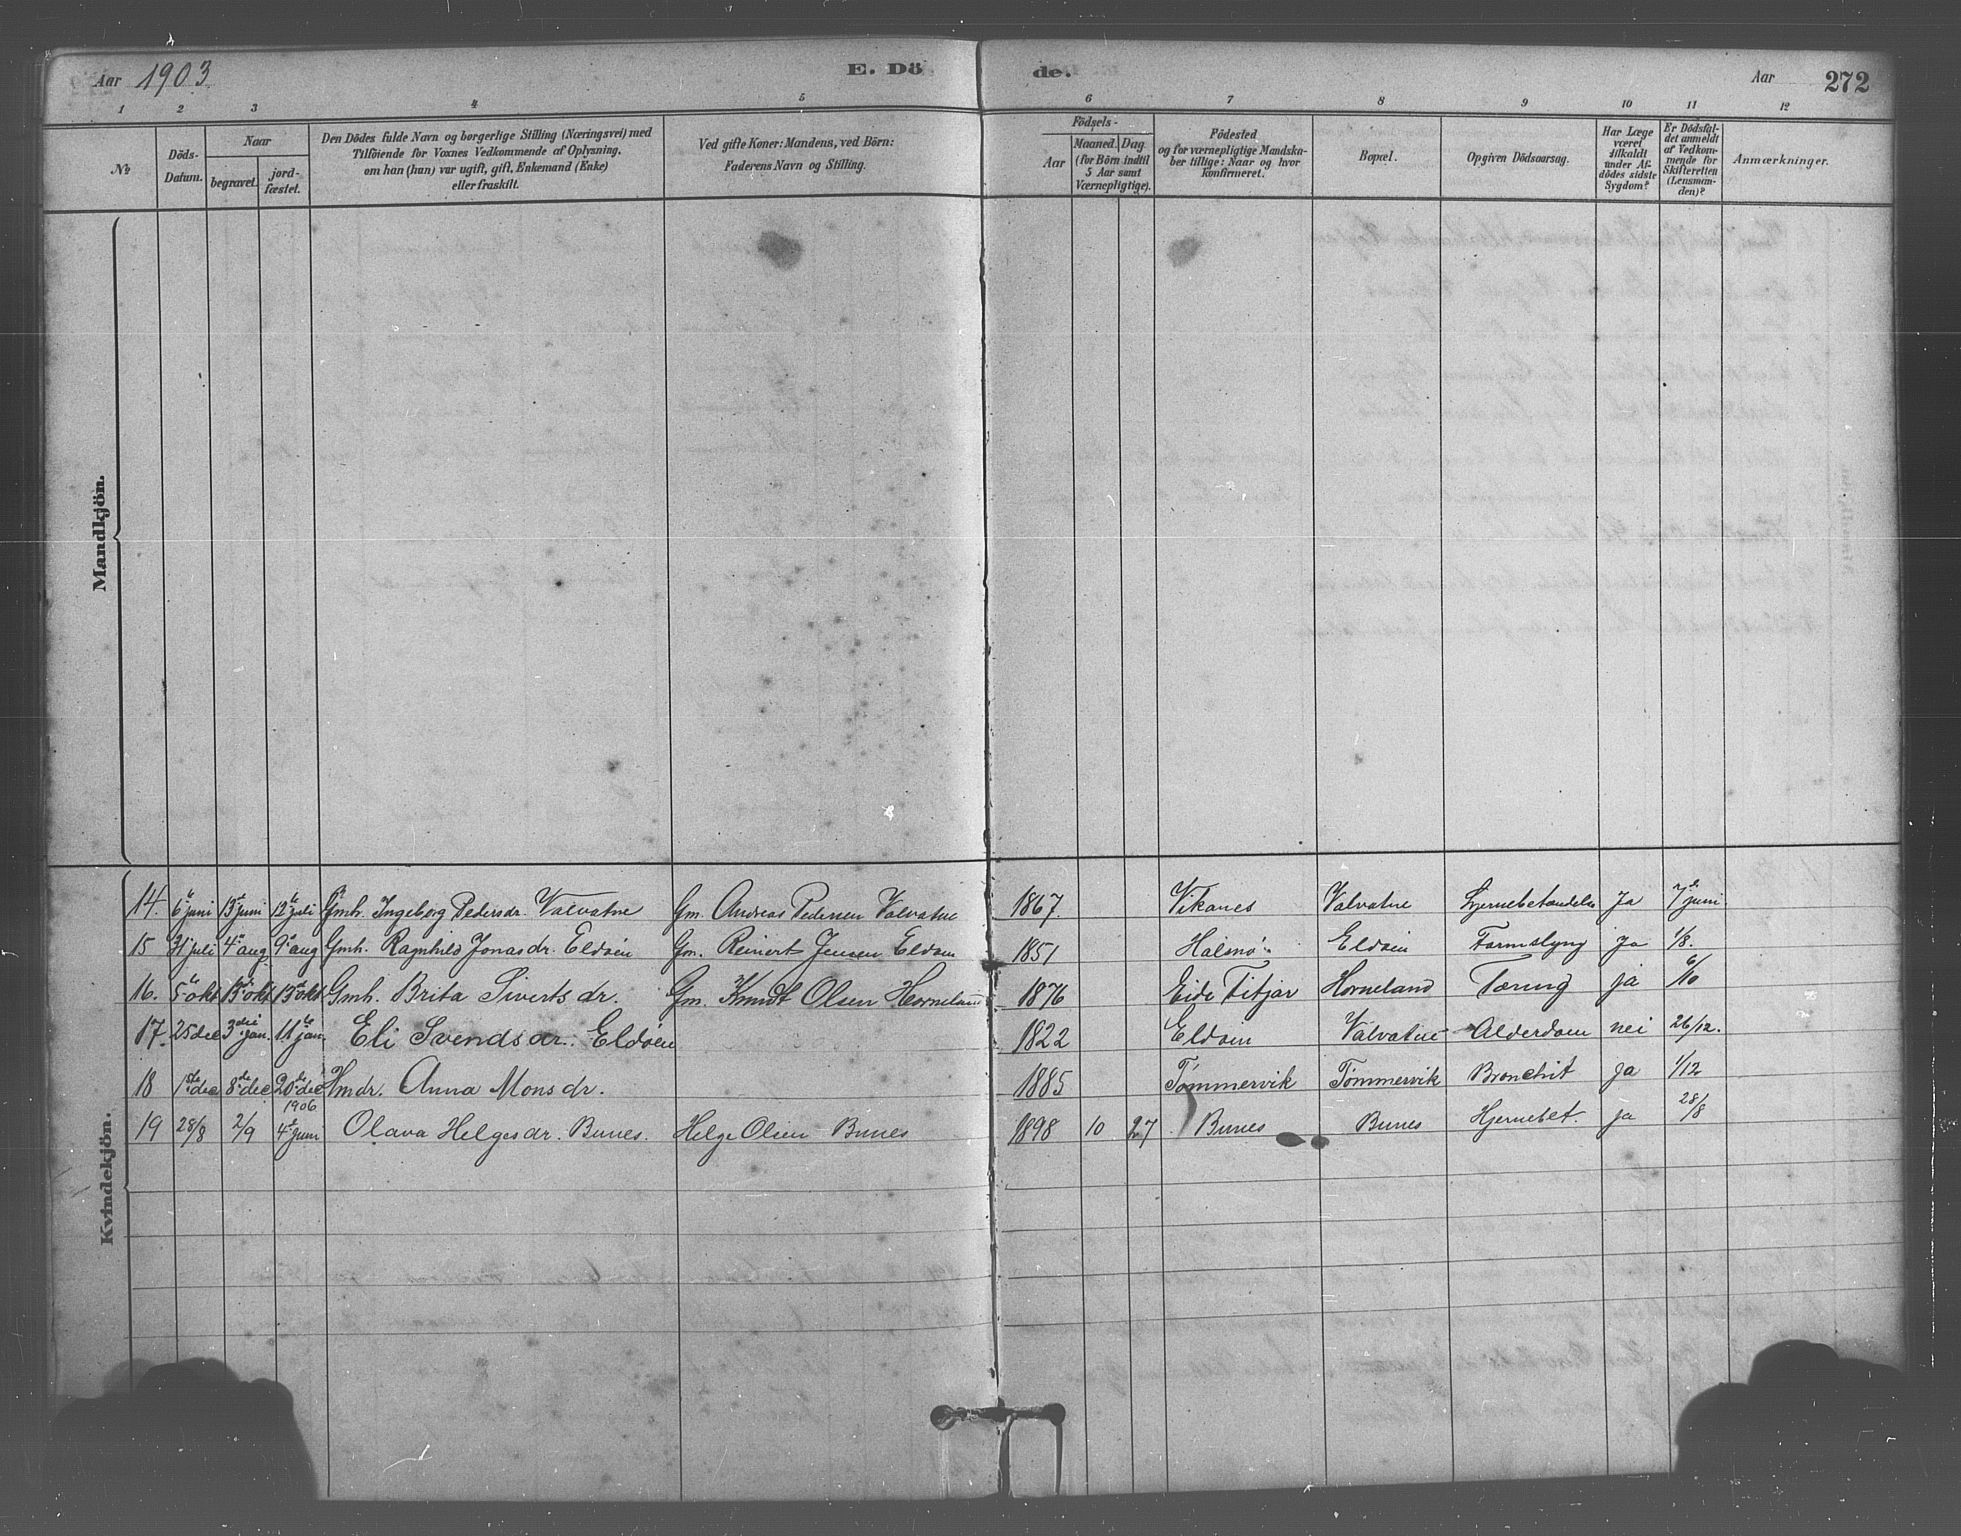 Aar 1903 E. Döde. Aar 272
1 2 3 4 5 6 7 8 9 10 11 12
No
Döds-Datum.
Naar
begravet. jordfæstet.
Den Dödes fulde Navn og borgerlige Stilling (Næringsvei) med
Tilföiende for Voxnes Vedkommende af Oplysning,
om han (han) var ugift, gift, Enkemand (Enke)
eller fraskilt.
Ved gifte Koner: Mandens, ved Börn:
Faderens Navn og Stilling.
Födsels-
Aar
Maaned. Dag
(for Börn indtil
5 Aar samt
Værnepligtige).
Födested
og for værnepligtige Mandska-
ber tillige: Naar og hvor
konfirmeret.
Bopæl.
Opgiven Dödsaarsag.
Har Læge
været
tilkaldt
under Af-
dödes sidste
Sygdom?
Er Dödsfal-
det anmeldt
af Vedkom-
mende for
Skifteretten
(Lensman-
den)?
Anmærkninger.
Mandkjön.
Kvindekjön.
14. 6te juni 13de juni 12te juli Gmh. Ingeborg Pedersdr. Valvatne Gm. Andreas Pedersen Valvatne 1867. Vikanes Valvatne Hjernebetændelse Ja 7de juni
15 31 juli 4de aug 9de aug Gmh. Ragnhild Jonasdr. Eldöen Gm. Reinert Jensen Eldöen 1851 Halsnö Eldöen Farmslyng ja 1/8.
16. 5te okt 13de okt 13de okt Gmh. Brita Siverts dr. Gm. Knudt Olsen Horneland 1876 Eide Fitjar Horneland Tæring ja 6/10
17. 25 dec 3die jan. 11te jan. Eli Svends dr. Eldöen 1822 Eldöen Valvatne Alderdom nei 26/12.
18 1ste dec 8de dec 20de dec Hmdr. Anna Mons dr. 1885 Tømmervik Tømmervik Bronchit ja 1/12
19 28/8 2/9 1906 4de juni Olava Helgesdr. Bunes. Helge Olsen Bunes 1898 10 27 Bunes Bunes Hjernebet. ja 28/8